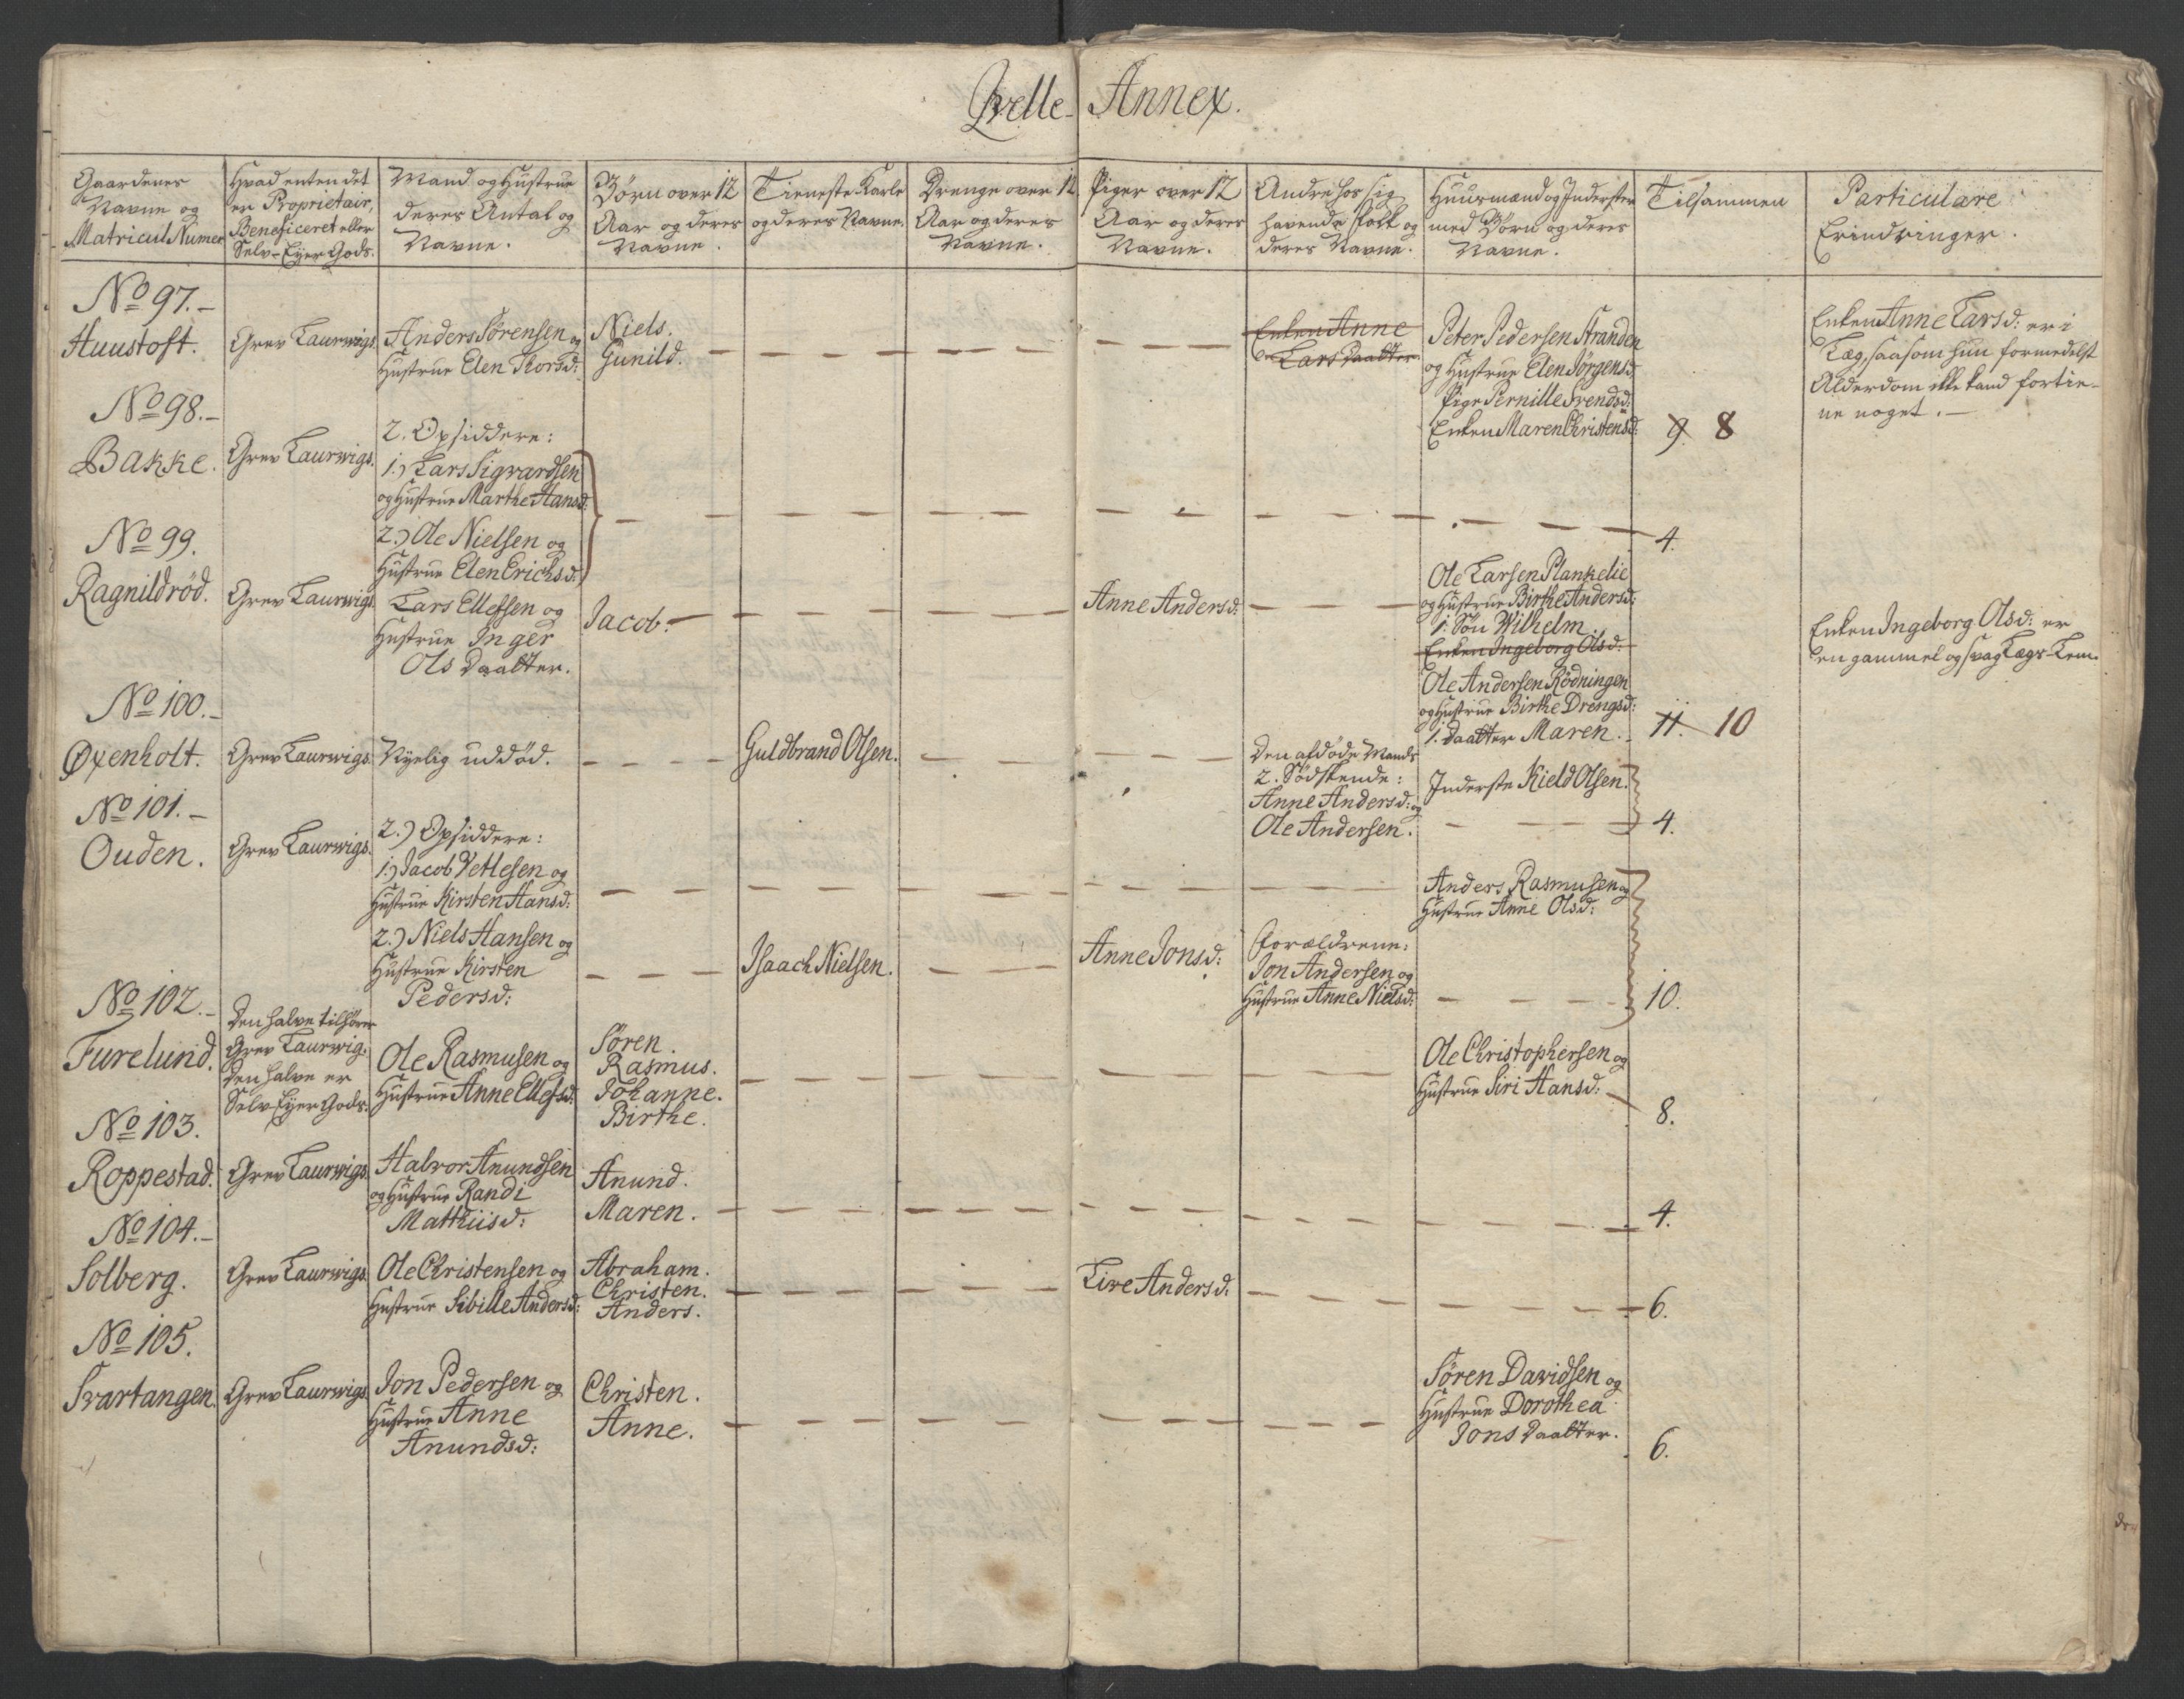 Qvelle Annex.
Gaardenes
Navne og
Matricul Numer
Hvad enten det
er Proprietair,
Beneficeret eller
Selv-Eyer Gods.
Mand og Hustrue
deres Antal og
Navne.
Börn over 12
Aar og deres
Navne.
Tieneste Karle
og deres Navne.
Drenge over 12
Aar og deres
Navne.
Piger over 12
Aar og deres
Navne.
Andre hos sig
havende Folk og
deres Navne.
Huusmænd og Inderster
med Börn og deres
Navne.
Tilsammen
Particulære
Erindringer.
No 97.-
Huustoft.
Grev Laurwigs.
Anders Sörensen og
Hustrue Elen Thorsd:
Niels.
Gunild.
Enken Anne
Lars Daatter.
Peter Pedersen Stranden
og Hustrue Elen Jörgensd:
Pige Pernille Svendsd:
Enken Maren Christensd:
9. 8
Enken Anne Larsd: er i
Læg, saasom hun formedelst
Alderdom ikke kand fortie-
ne noget.-
No 98.-
Bakke.
Grev Laurwigs.
2. Opsiddere:
1.) Lars Sigvardsen
og Hustrue Marthe Hansd:
2.) Ole Nielsen og
Hustrue Elen Erichsd:
4.
No 99.
Ragnildröd.
Grev Laurwigs.
Lars Ellefsen og
Hustrue Inger
Ols Daatter.
Jacob.
Anne Andersd:
Ole Larsen Plankelie
og Hustrue Birthe Andersd:
1. Sön Wilhelm.
Enken Ingeborg Olsd:
Ole Andersen Rödningen
og Hustrue Birthe Drengsd:
1. Daatter Maren.
11. 10
Enken Ingeborg Olsd: er
en gammel og svag Lægs-Lem.
No 100.-
Øxenholt.
Grev Laurwigs.
Nyelig uddöd.
Guldbrand Olsen.
Den afdöde Mands
2. Södskende:
Anne Andersd: og
Ole Andersen.
Inderste Kield Olsen.
4.
No 101.-
Ouden.
Grev Laurwigs.
2.) Opsiddere:
1.) Jacob Vetlesen og
Hustrue Kirsten Hansd:
2.) Niels Hansen og
Hustrue Kirsten
Pedersd:
Isaach Nielsen.
Anne Jonsd:
Forældrene:
Jon Andersen og
Hustrue Anne Nielsd:
Anders Rasmusen og
Hustrue Anne Olsd:
10.
No 102.-
Furelund.
Den halve tilhörer
Grev Laurwig.
Den halve er
Selv-Eyer Gods.
Ole Rasmusen og
Hustrue Anne Ellefsd:
Sören.
Rasmus.
Johanne.
Birthe.
Ole Christophersen og
Hustrue Siri Hansd:
8.
No 103.
Roppestad.
Grev Laurwigs.
Halvor Anundsen
og Hustrue Randi
Matthiisd:
Anund.
Maren.
4.
No 104.-
Solberg.
Grev Laurwigs.
Ole Christensen og
Hustrue Sibille Andersd:
Abraham.
Christen.
Anders.
Live Andersd:
6.
No 105.
Svartangen.
Grev Laurwigs.
Jon Pedersen og
Hustrue Anne
Anundsd:
Christen.
Anne.
Sören Davidsen og
Hustrue Dorothea
Jons Daatter.
6.